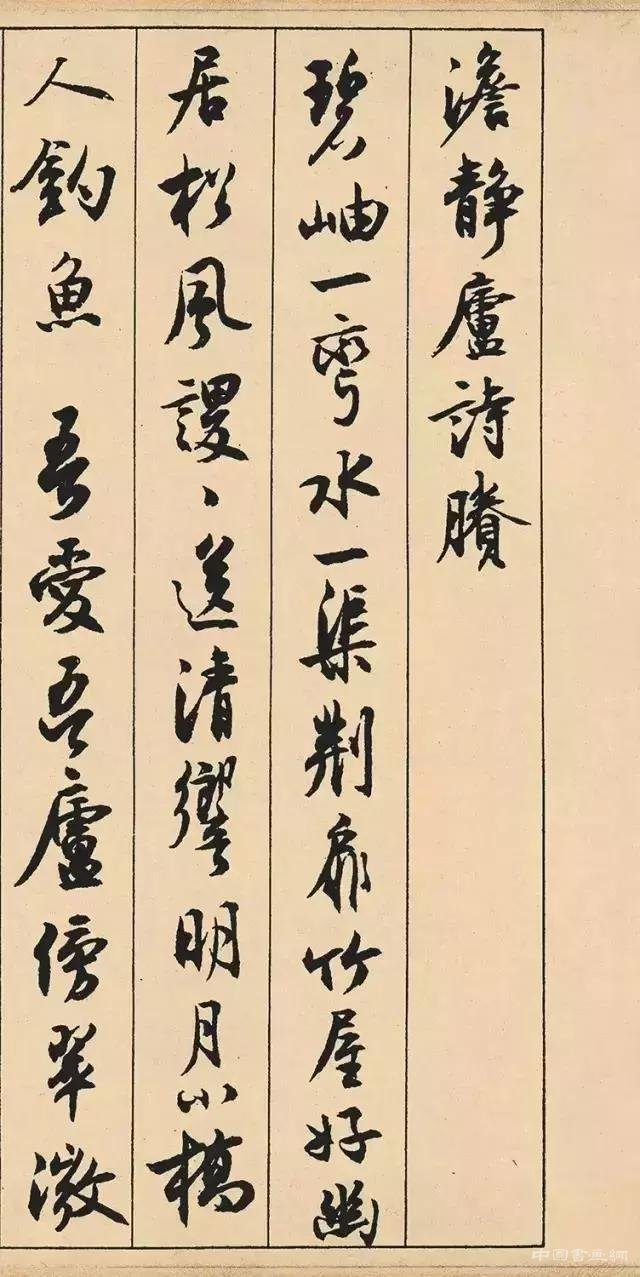 澹静廬詩賸
碧岫一彎水一渠荆扉竹屋好幽
居松風謖〻送清響明月小橋
人釣魚 吾愛吾廬傍翠微
中國書畫網